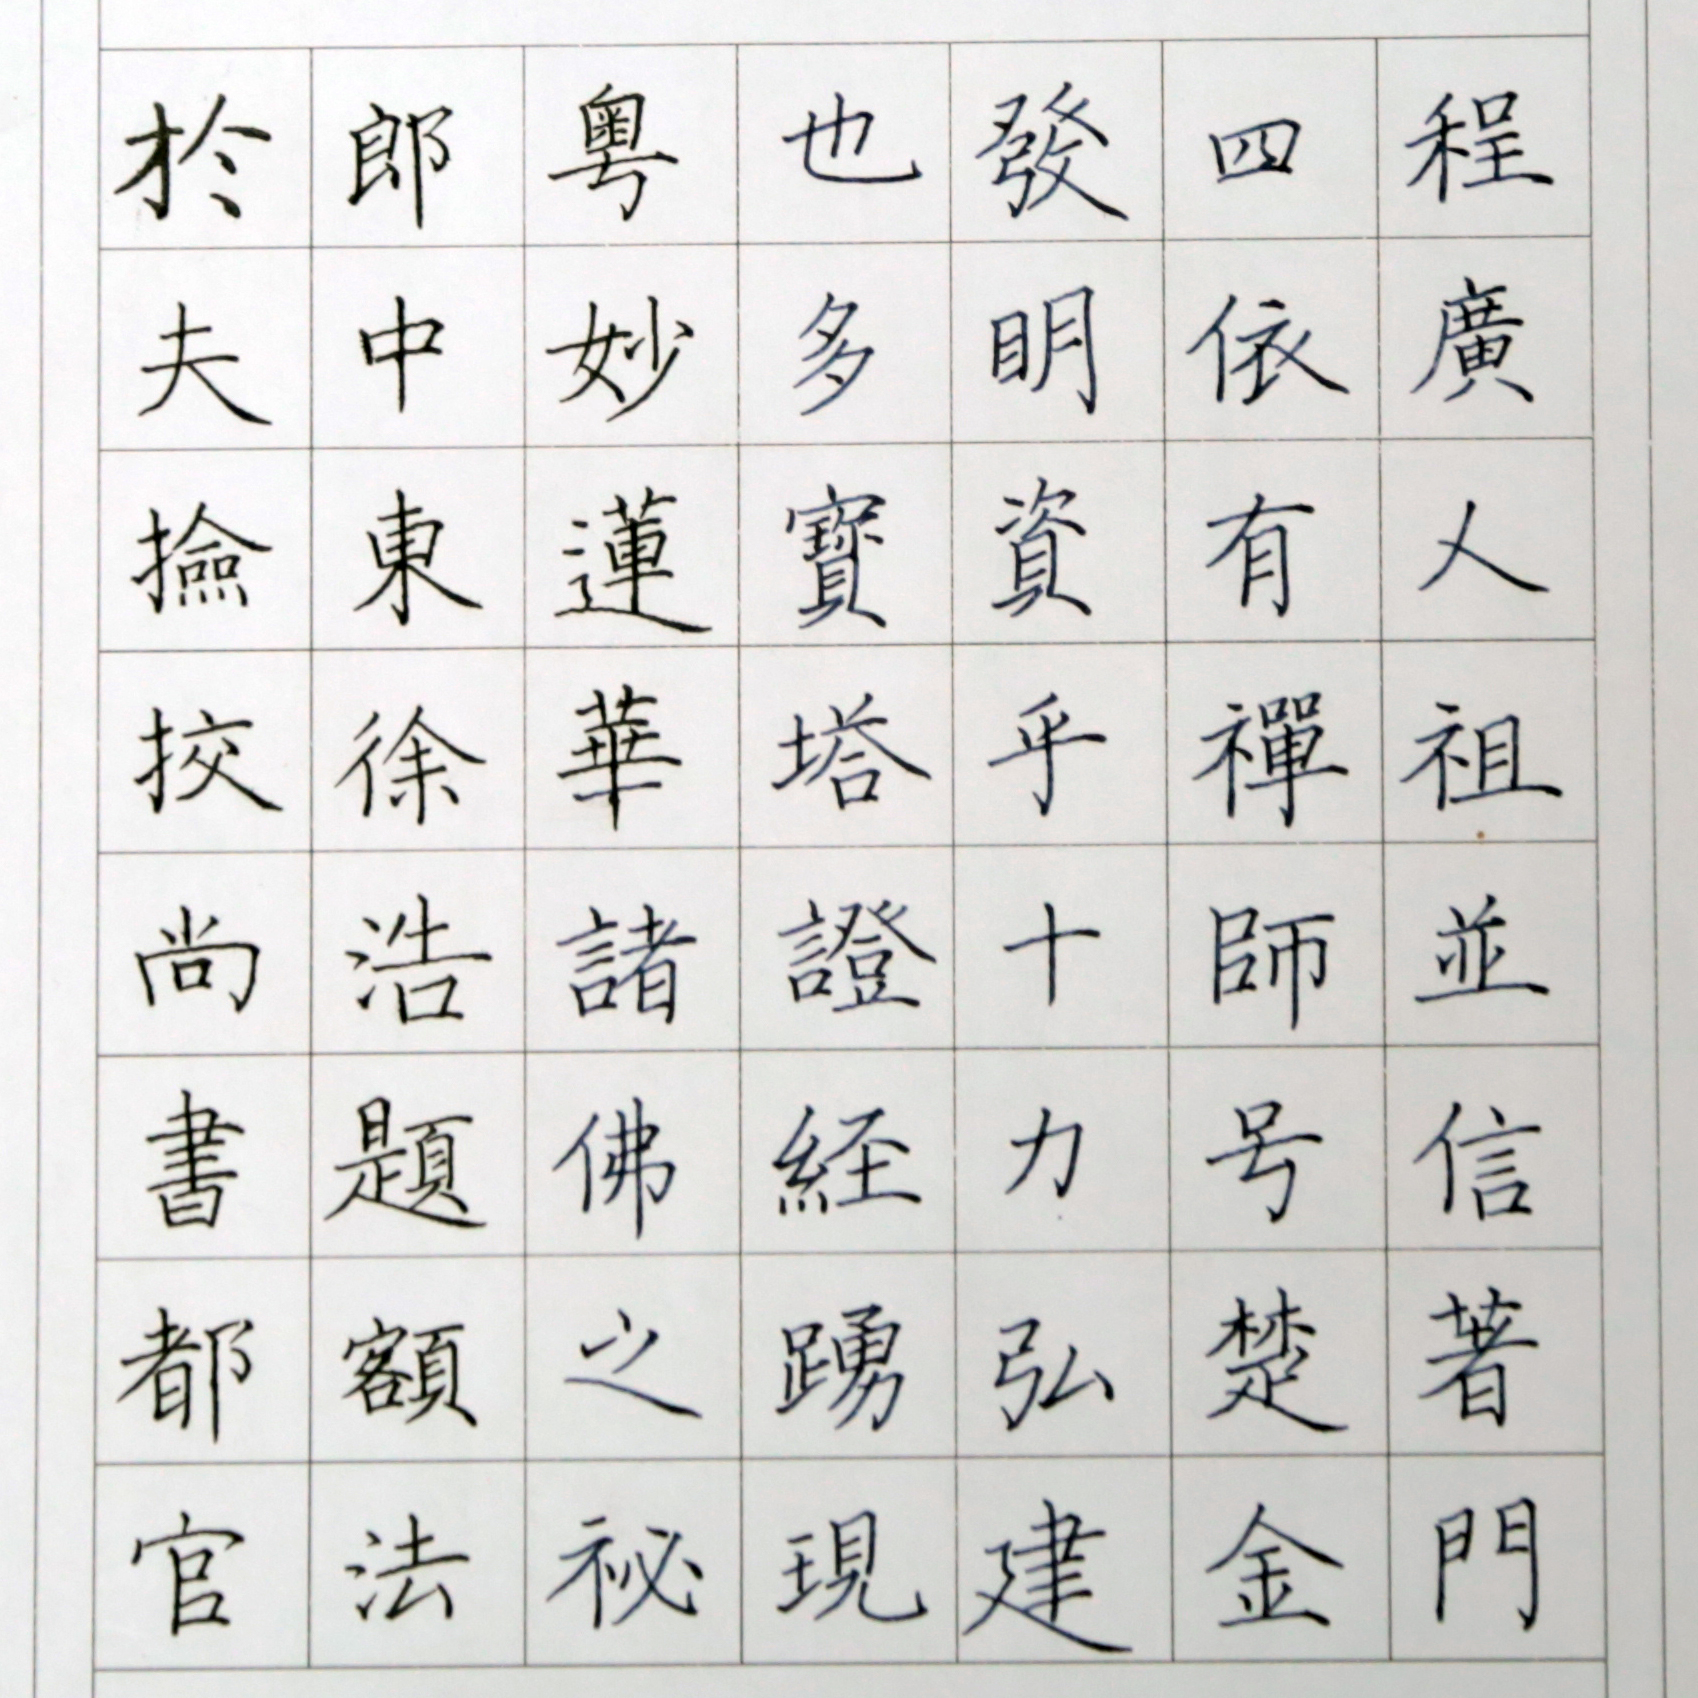 於夫撿挍尚書都官
郎中東徐浩題額法
粤妙蓮華諸佛之祕
也多寶塔證経踴現
發眀資乎十力弘建
四依有禪師号楚金
程廣人祖並信著門